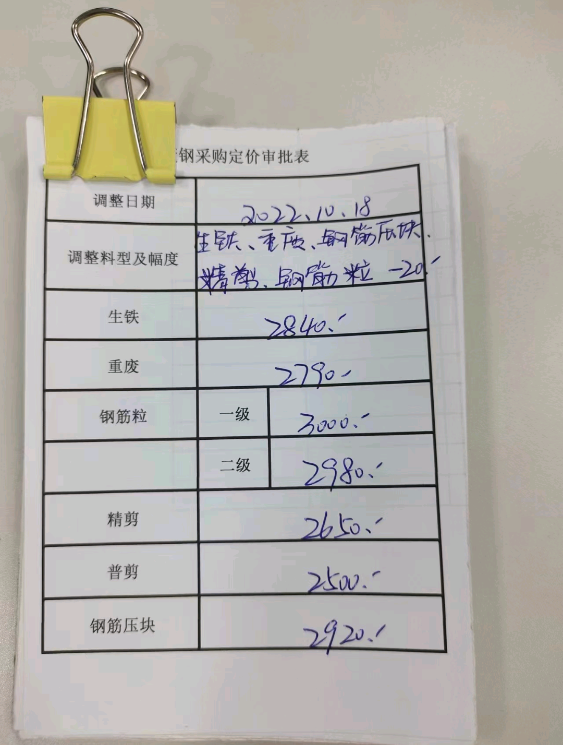 钢采购定价审批表
调整日期 2022.10.18
调整料型及幅度 生铁、重废、钢筋压块、
精剪、钢筋粒 -20.-
生铁 2840.-
重废 2790.-
钢筋粒 一级 3000.-
二级 2980.-
精剪 2650.-
普剪 2500.-
钢筋压块 2920.-